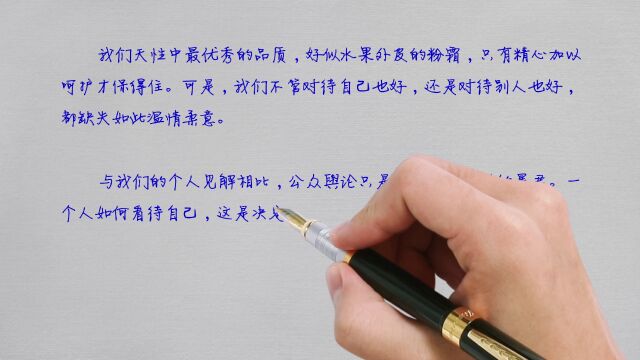 我们天性中最优秀的品质，好似水果外皮的粉霜，只有精心加以
呵护才保得住。可是，我们不管对待自己也好，还是对待别人也好，
都缺失如此温情柔意。
与我们的个人见解相比，公众舆论只是 暴君。一
个人如何看待自己，这是决